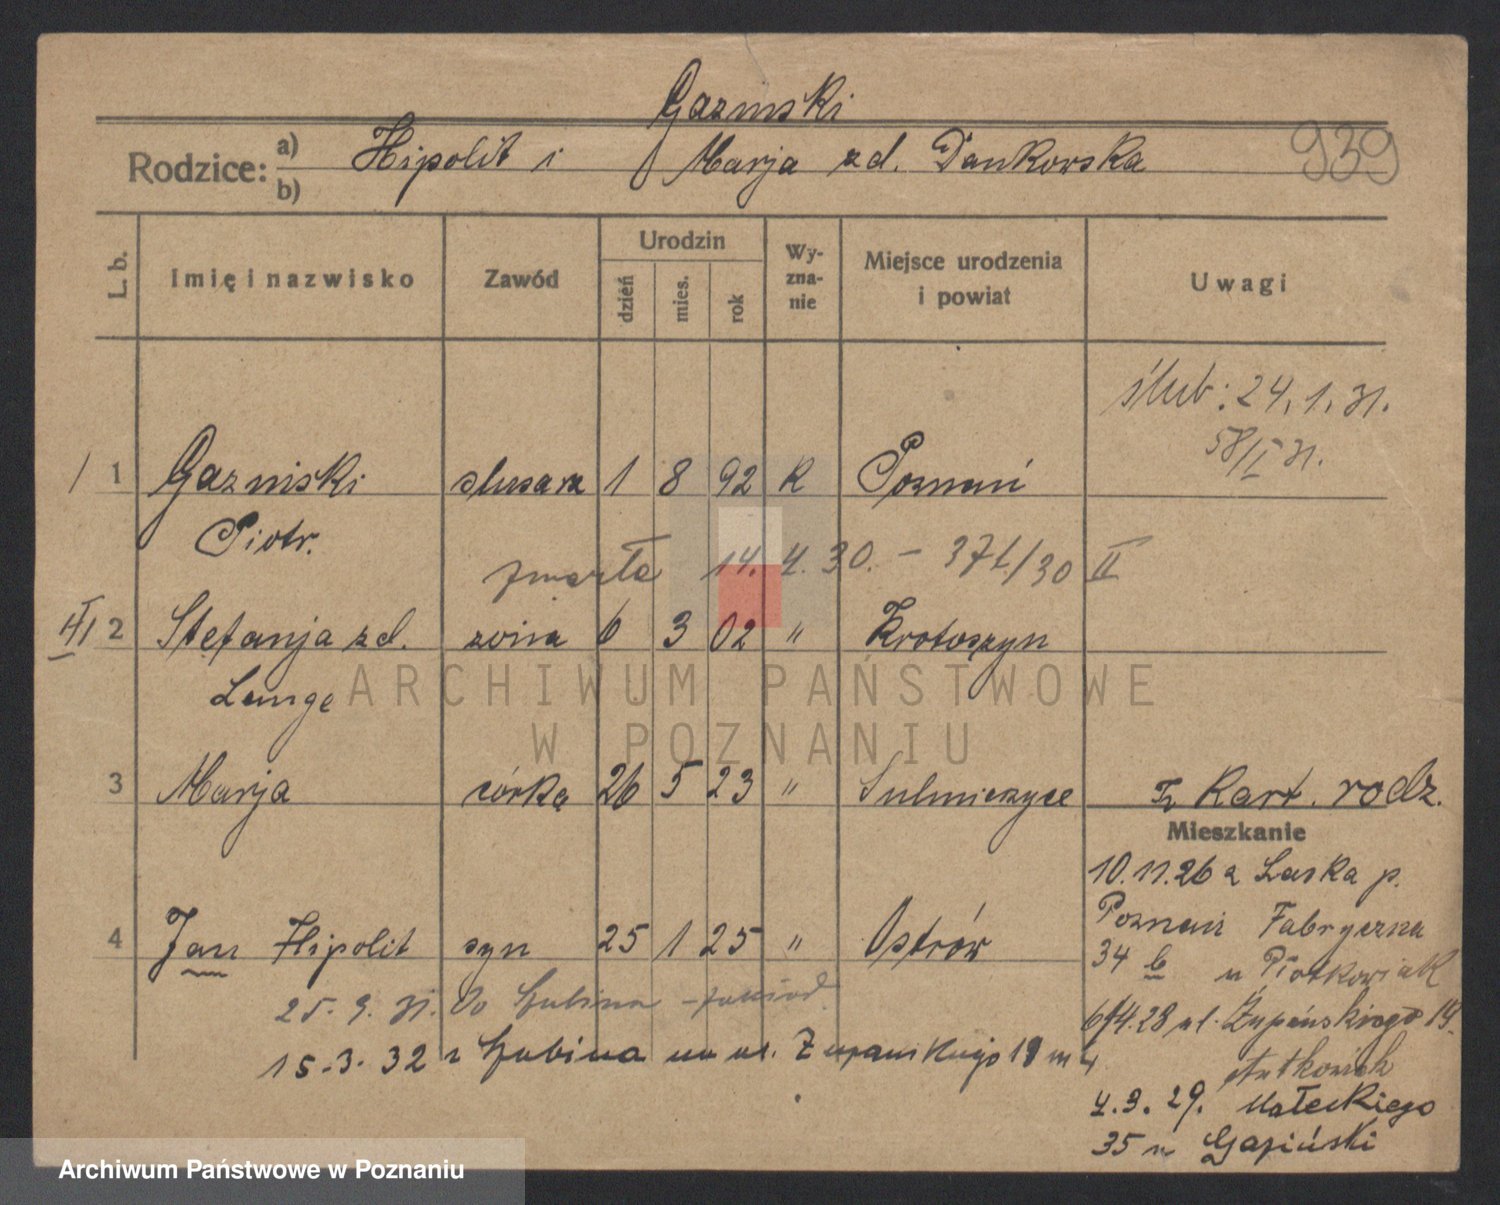 Gazinski
939
Rodzice: a) b) Hipolit i Marja zd. Dankowska
L. b. Imię i nazwisko Zawód Urodzin dzień mies. rok Wyznanie Miejsce urodzenia i powiat Uwagi
ślub: 24.1.31.
58/II 31.
1 Gazinski ślusarz 1 8 92 K Poznań
Piotr.
zmarła 14.4.30. – 371/30 II
2 Stefanja zd. żona 6 3 02 " Krotoszyn
Lange
ARCHIWUM PAŃSTWOWE
W POZNANIU
3 Marja córka 26 5 23 " Sulmierzyce
Kart. rodz.
Mieszkanie
10.11.26 z Laska p.
Poznań Fabryczna
4 Jan Hipolit syn 25 1 25 " Ostrów
34 b u Piotkowiak
25.9.31. Do Lubina
6/4.28 ul. Żupańskiego 19
15.3.32 z Lubina na ul. Zupanskiego 19 m 4
Antkowiak
4.3.29. Małeckiego
35 u Gaziński
Archiwum Państwowe w Poznaniu